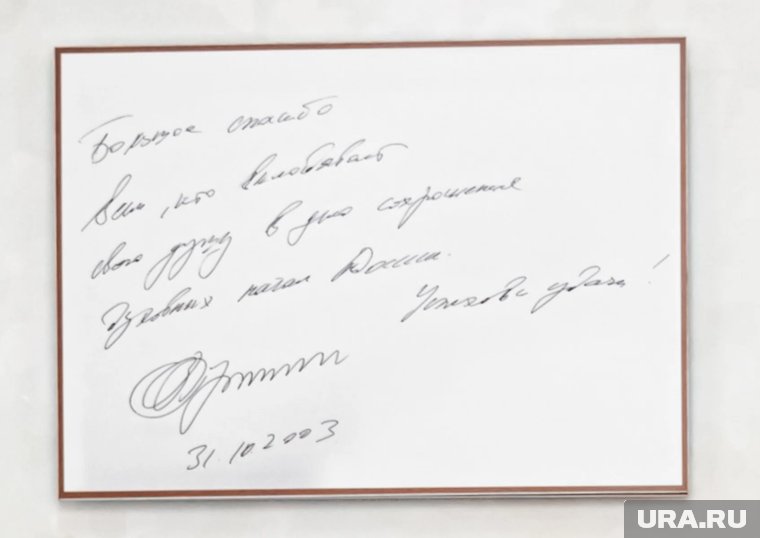 Большое спасибо
Всем, кто вкладывает
свою душу в дело сохранения
духовных начал России.
Успехов и удачи!
31.10.2003
URA.RU